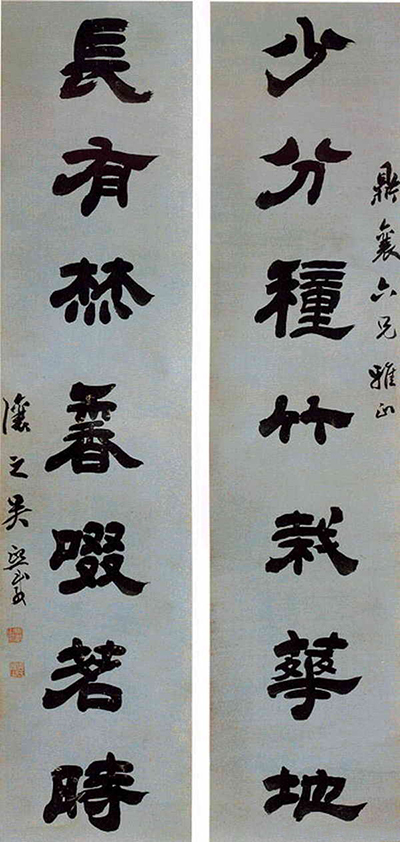 少分種竹栽華地
鼎襄六兄雅正
長有焚香啜茗時
讓之吳熙載